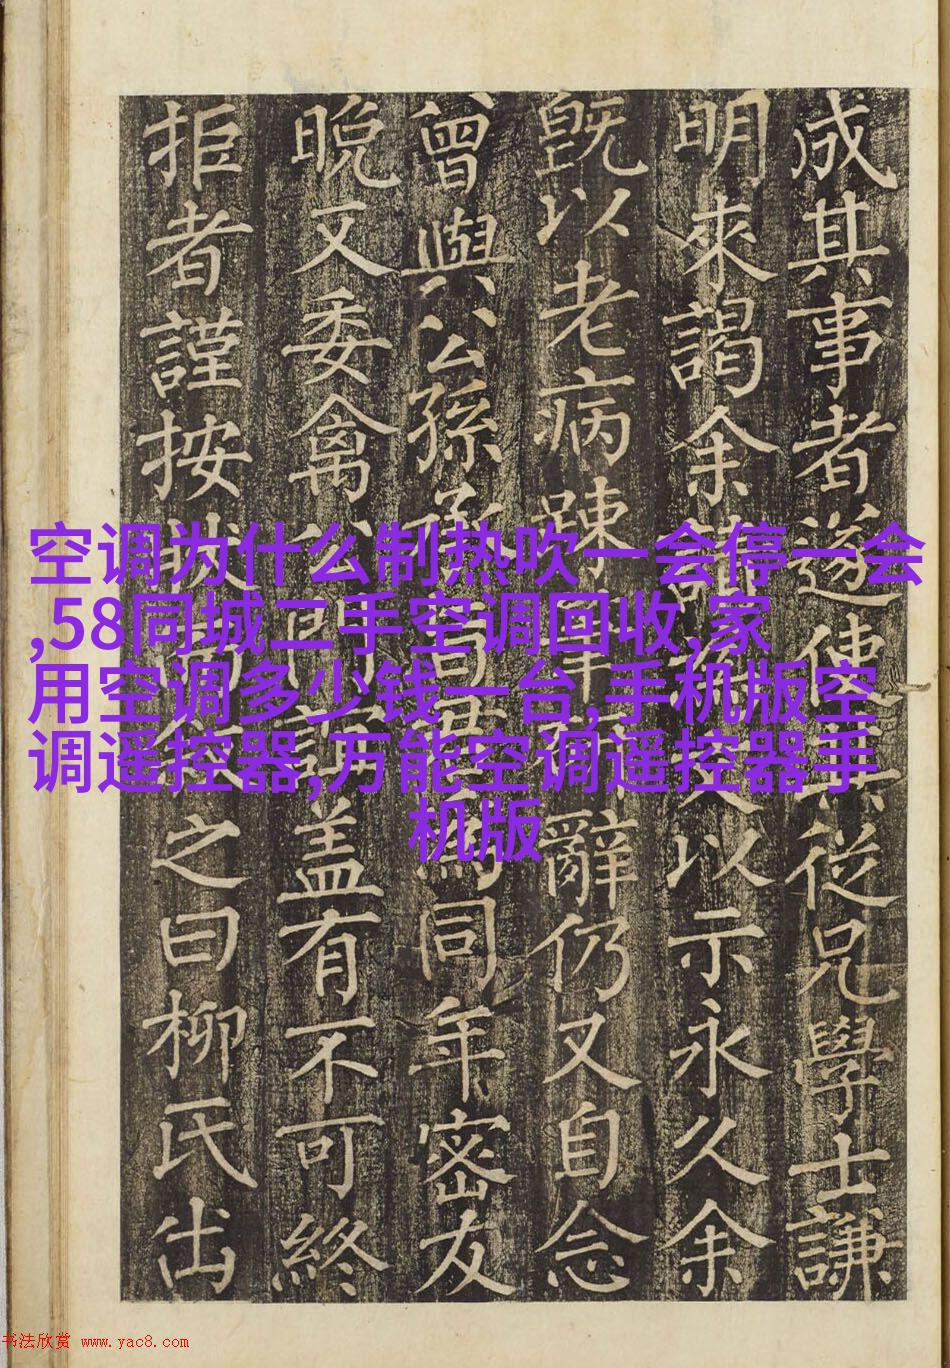 成其事者遂使其從兄學士謙
明來謁余以示永久余
既以老病踈辭仍又自念
曾與公孫同年密友
晚又委禽公門盖有不可終
拒者謹按之曰柳氏出
空调为什么制热吹一会停一会
,58同城二手空调回收,家
用空调多少钱一台,手机版空
调遥控器,万能空调遥控器手
机版
书法欣赏 www.yac8.com